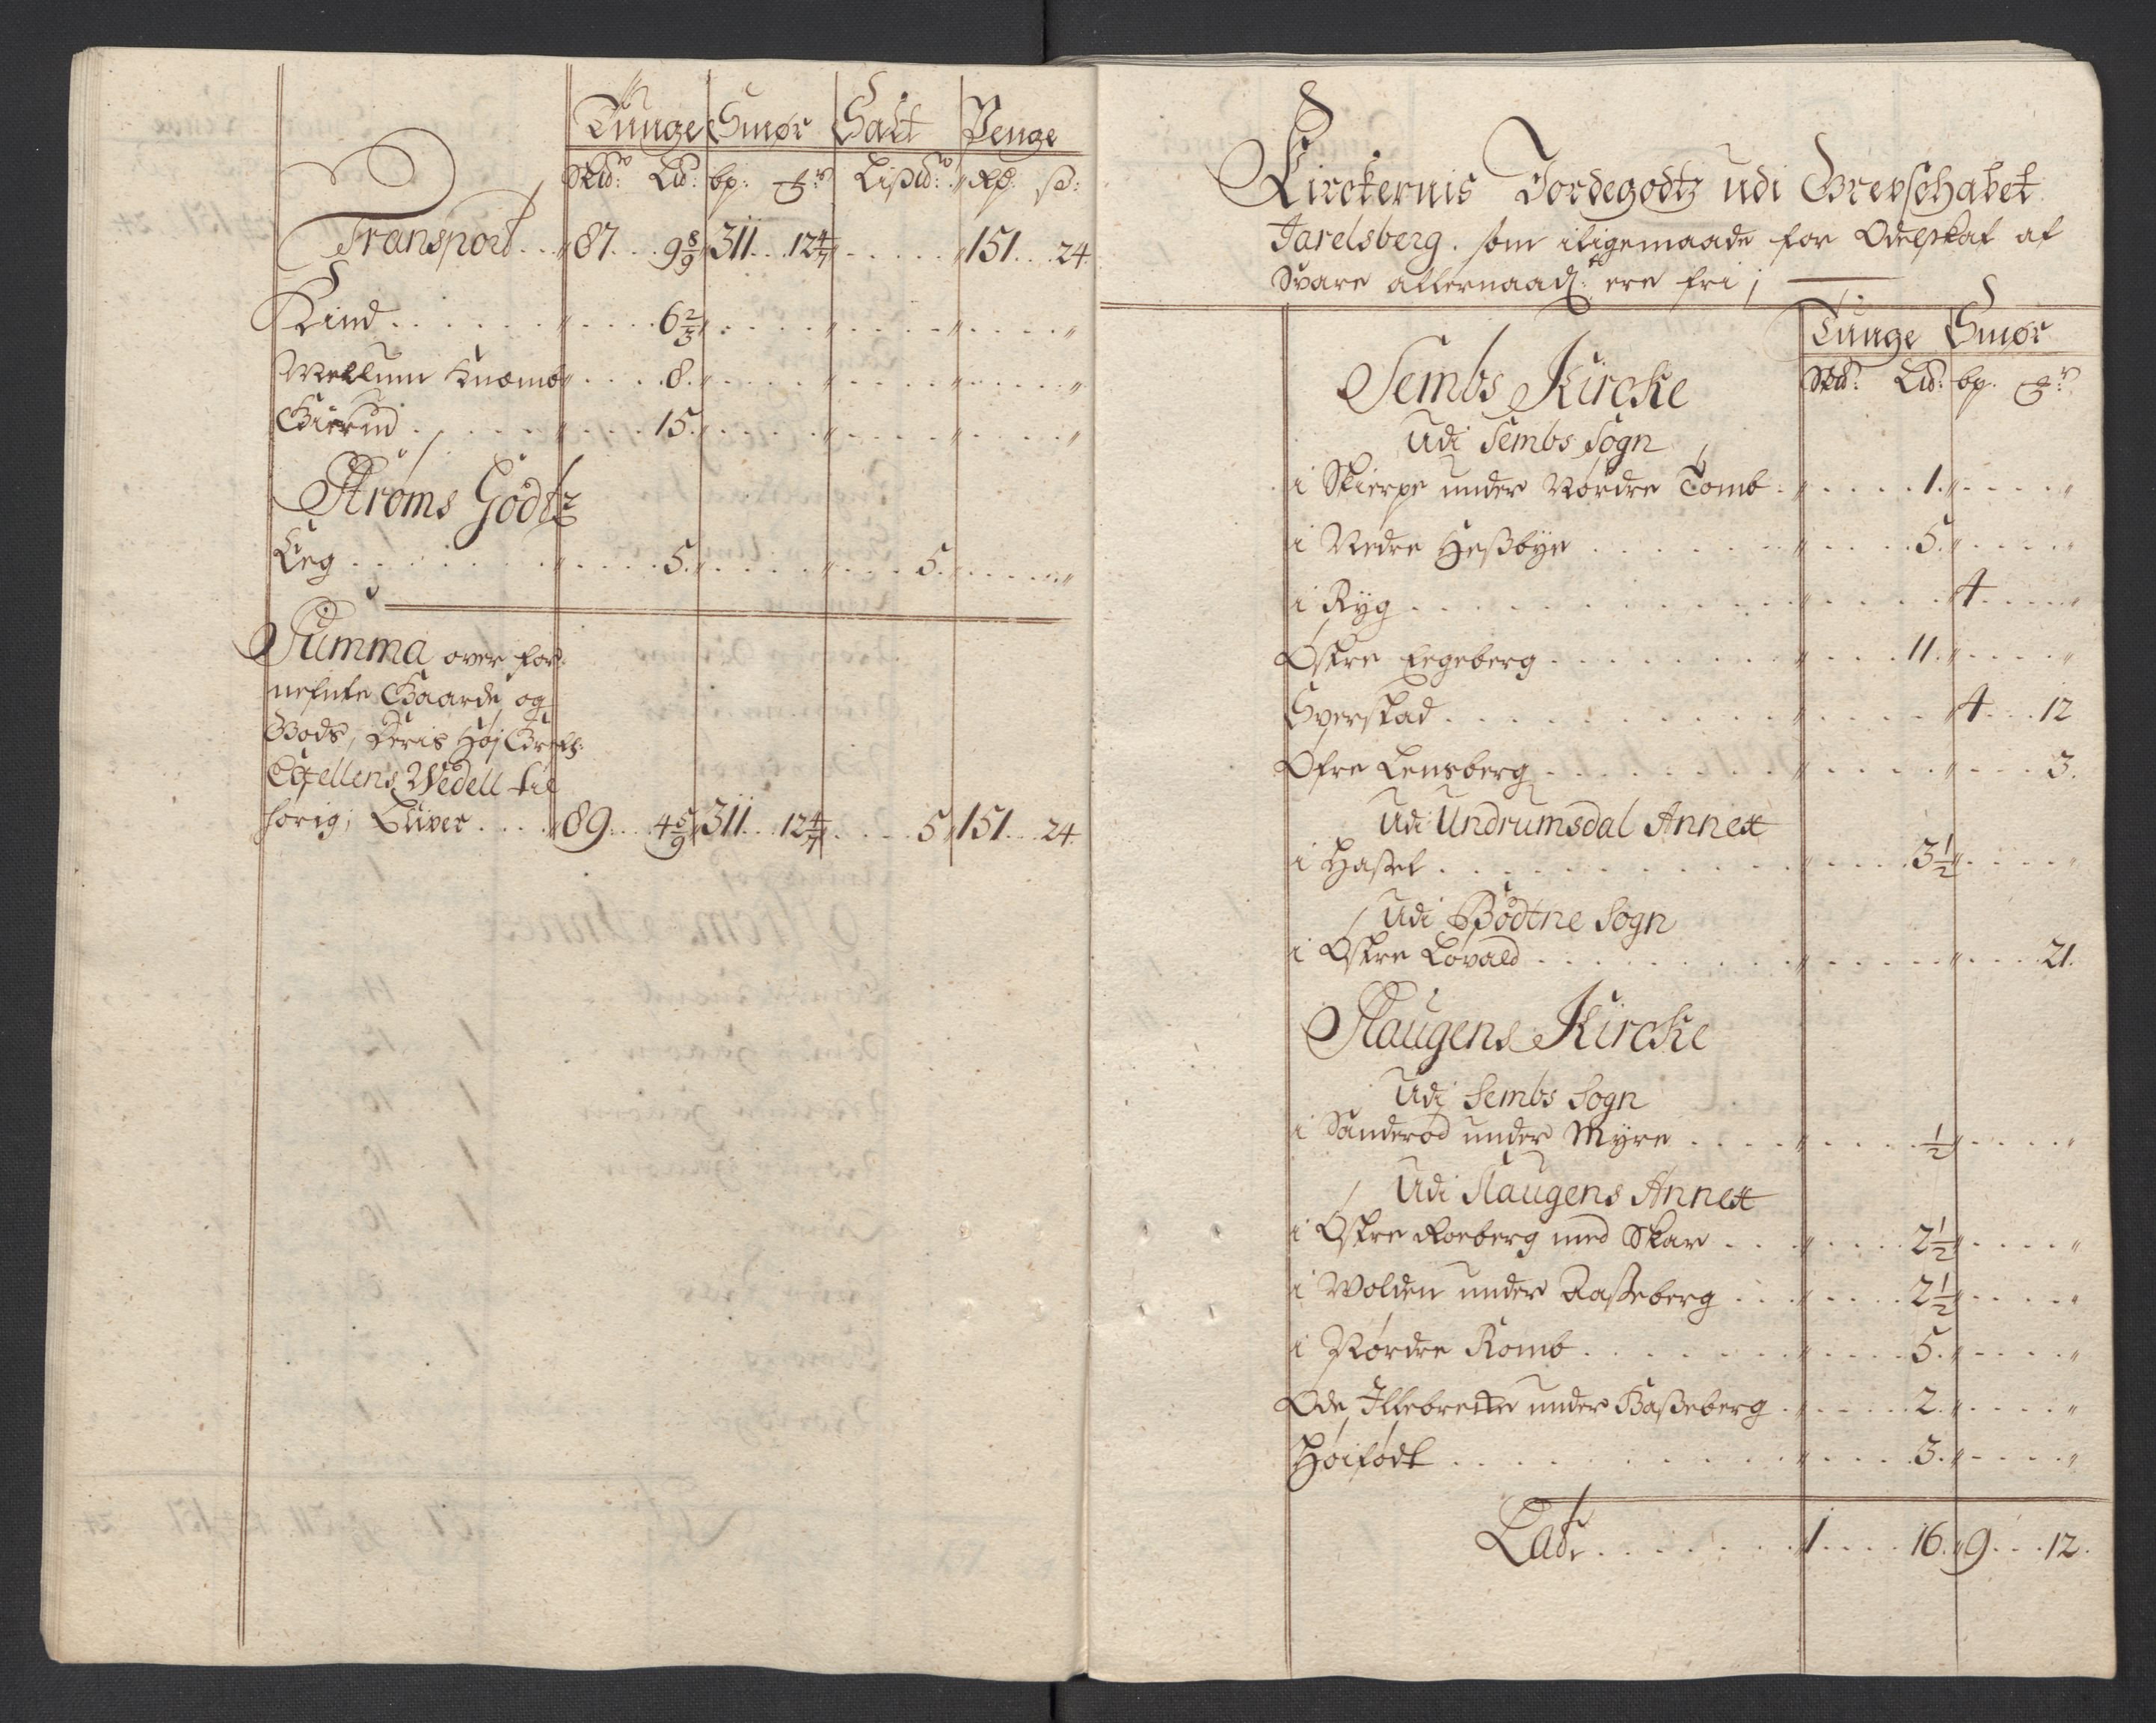 Tunge Smör Salt Penge
Skd: Ld: bp: ℔r Lispd: Rd: s:
Transport . . . 87. . . 9 8/9 311. . . 12 4/7 . . . . . 151. . . 24.
Lind . . . . . . 6 2/3 . . . .
Mellum Knæme . . . . 8. . . . .
Gierud . . . . . 15. . . . .
Strøms Godtz
Leg . . . . . . 5. . . . . 5. . . . .
Summa over for:
nefnte Gaarde og
Gods, Deris Høj Grefl:
Exellens Wedell til
hørig; Bliver . . . . 89. . . 4 5/9 311. . . 12 4/7 . . . . 5 151. . . 24.
Kirckernis Jordegodtz udi Grevschabet
Jarelsberg. som iligemaade for Odelskat at
Svare allernaad: ere fri;
Tunge Smör
Skd: Ld: bp. ℔r
Sembs Kircke
Udi Sembs Sogn
i Skierpe under Nordre Tomb . . . . . 1. . . . .
i Nedre Hessbye . . . . . . 5. . . . .
i Ryg . . . . . . . 4. . . .
Østre Eegeberg . . . . . . . 11. . . . .
Sverstad . . . . . . . . 4. . . 12
Øfre Lensberg . . . . . . . . 3.
Udi Undrumsdal Annex
i Hasset . . . . . . . . 3 1/2 . . . .
Udi Bødtne Sogn
i Østre Løvald . . . . . . . . . 21.
Slaugens Kircke
Udi Sembs Sogn
i Sanderød under Myre . . . . . . . 1/2 . . . .
Udi Slaugens Annex
i Østre Roeberg med Skar . . . . . . 2 1/2 . . . .
i Wolden under Aasseberg . . . . . . 2 1/2 . . . .
i Nordre Romb . . . . . . . . 5. . . . .
Øde Illebrette under Basseberg . . . . . 2. . . . .
Høifødt . . . . . . . . 3. . . . .
Latr . . . . . . 1. . . . 16. 9. . . 12.